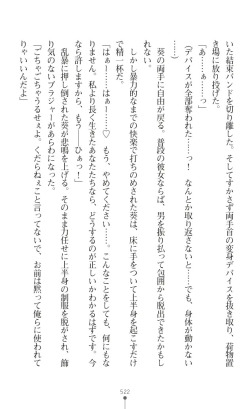 いた結束バンドを切り離した。そしてすかさず両手首の変身デバイスを抜き取り、荷物置
き場に放り投げた。
「ぁ……ぁ……っ」
（デバイスが全部奪われた……っ！　なんとか取り返さないと……でも、身体が動かない
……っ）
葵の両手に自由が戻る。普段の彼女ならば、男を振り払って包囲から脱出できたかもし
れない。しかし暴力的なまでの快楽で打ちのめされた葵は、床に手をついて上半身を起こすだけ
で精一杯だ。
「はぁ……ーっ、はぁ……っ♡　もう、やめてください……。こんなことをしても、何にもな
らない……！　私より長く生きたあなたたちなら、どうするのが正しいかわかるはずです。今
なら許しますから、もう――ひぁっ！」
乱暴に押し倒された葵が悲鳴を上げる。そのまま力任せに上半身の制服を脱がされ、飾
り気のないブラジャーがあらわになった。
「ごちゃごちゃうるせぇよ。くだらねぇこと言ってないで、お前は黙って俺らに使われて
りゃいいんだよ」
522